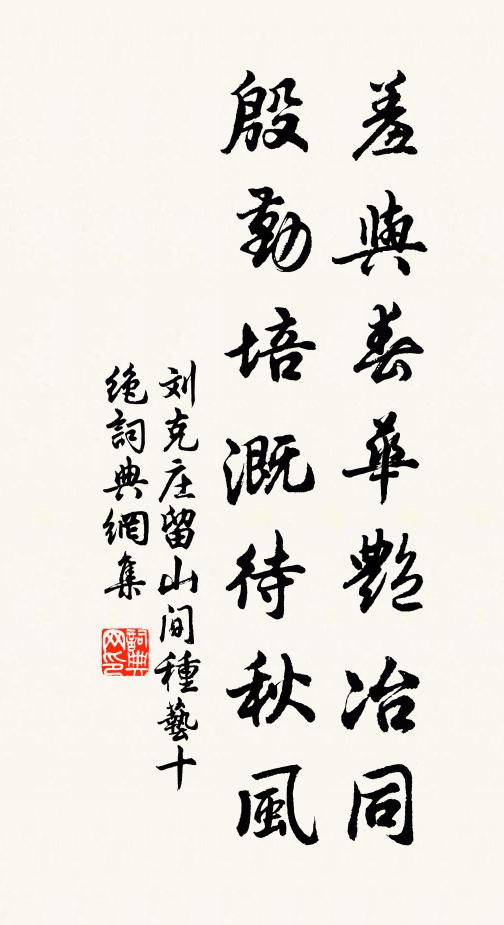 羞與春華艷冶同
殷勤培溉待秋風
刘克庄留山间種藝十
絶詞典網集
詞典
网印